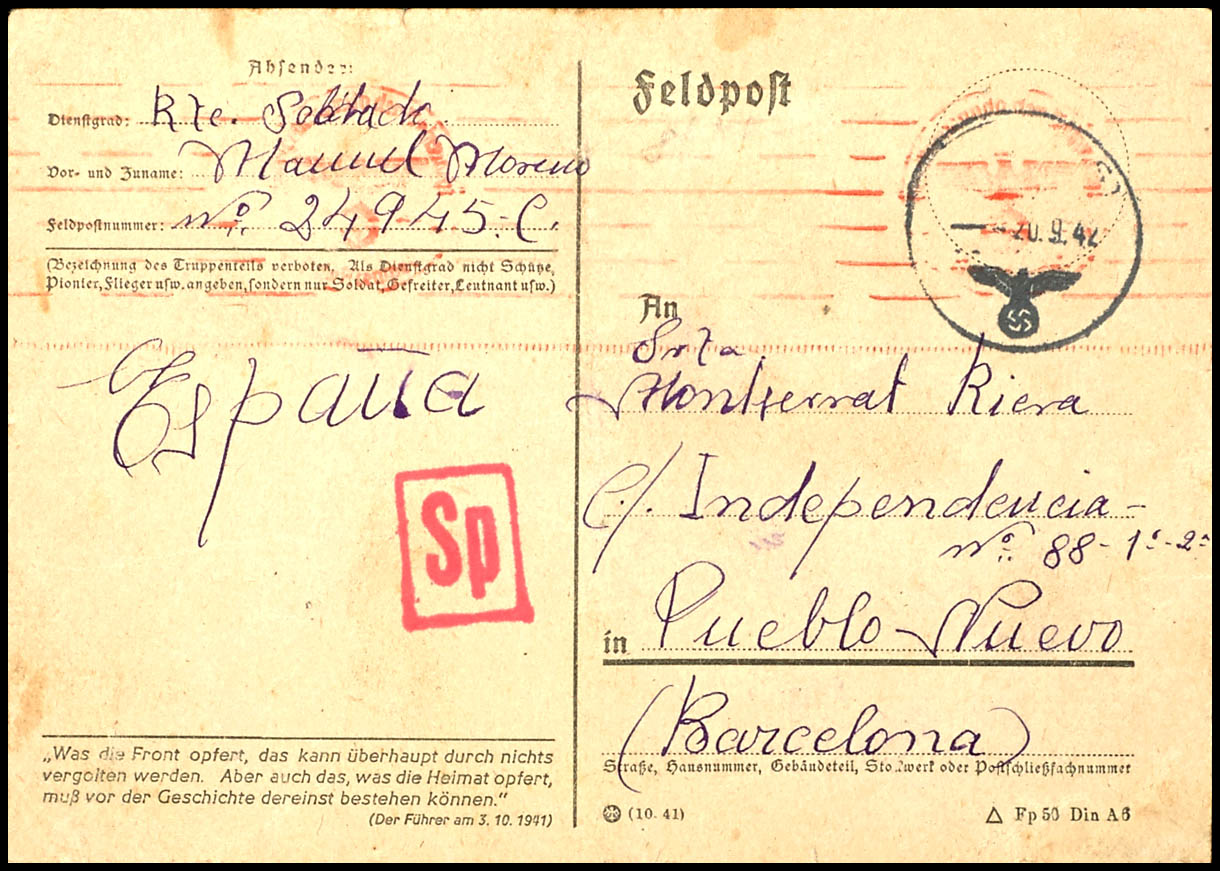 Absender:
Dienstgrad: Rte. Soldado
Vor- und Zuname: Manuel Moreno
Feldpostnummer: Nº. 24945-C.
(Bezeichnung des Truppenteils verboten. Als Dienstgrad nicht Schütze,
Pionier, Flieger usw. angeben, sondern nur Soldat, Gefreiter, Leutnant usw.)
España
Sp
„Was die Front opfert, das kann überhaupt durch nichts
vergolten werden. Aber auch das, was die Heimat opfert,
muß vor der Geschichte dereinst bestehen können."
(Der Führer am 3. 10. 1941)
Feldpost
20.9.42
An
Srta
Montserrat Riera
C/. Independencia-
Nº 88-1º-2ª
in Pueblo-Nuevo
(Barcelona)
Straße, Hausnummer, Gebäudeteil, Stockwerk oder Postschließfachnummer
(10. 41)
Fp 50 Din A6